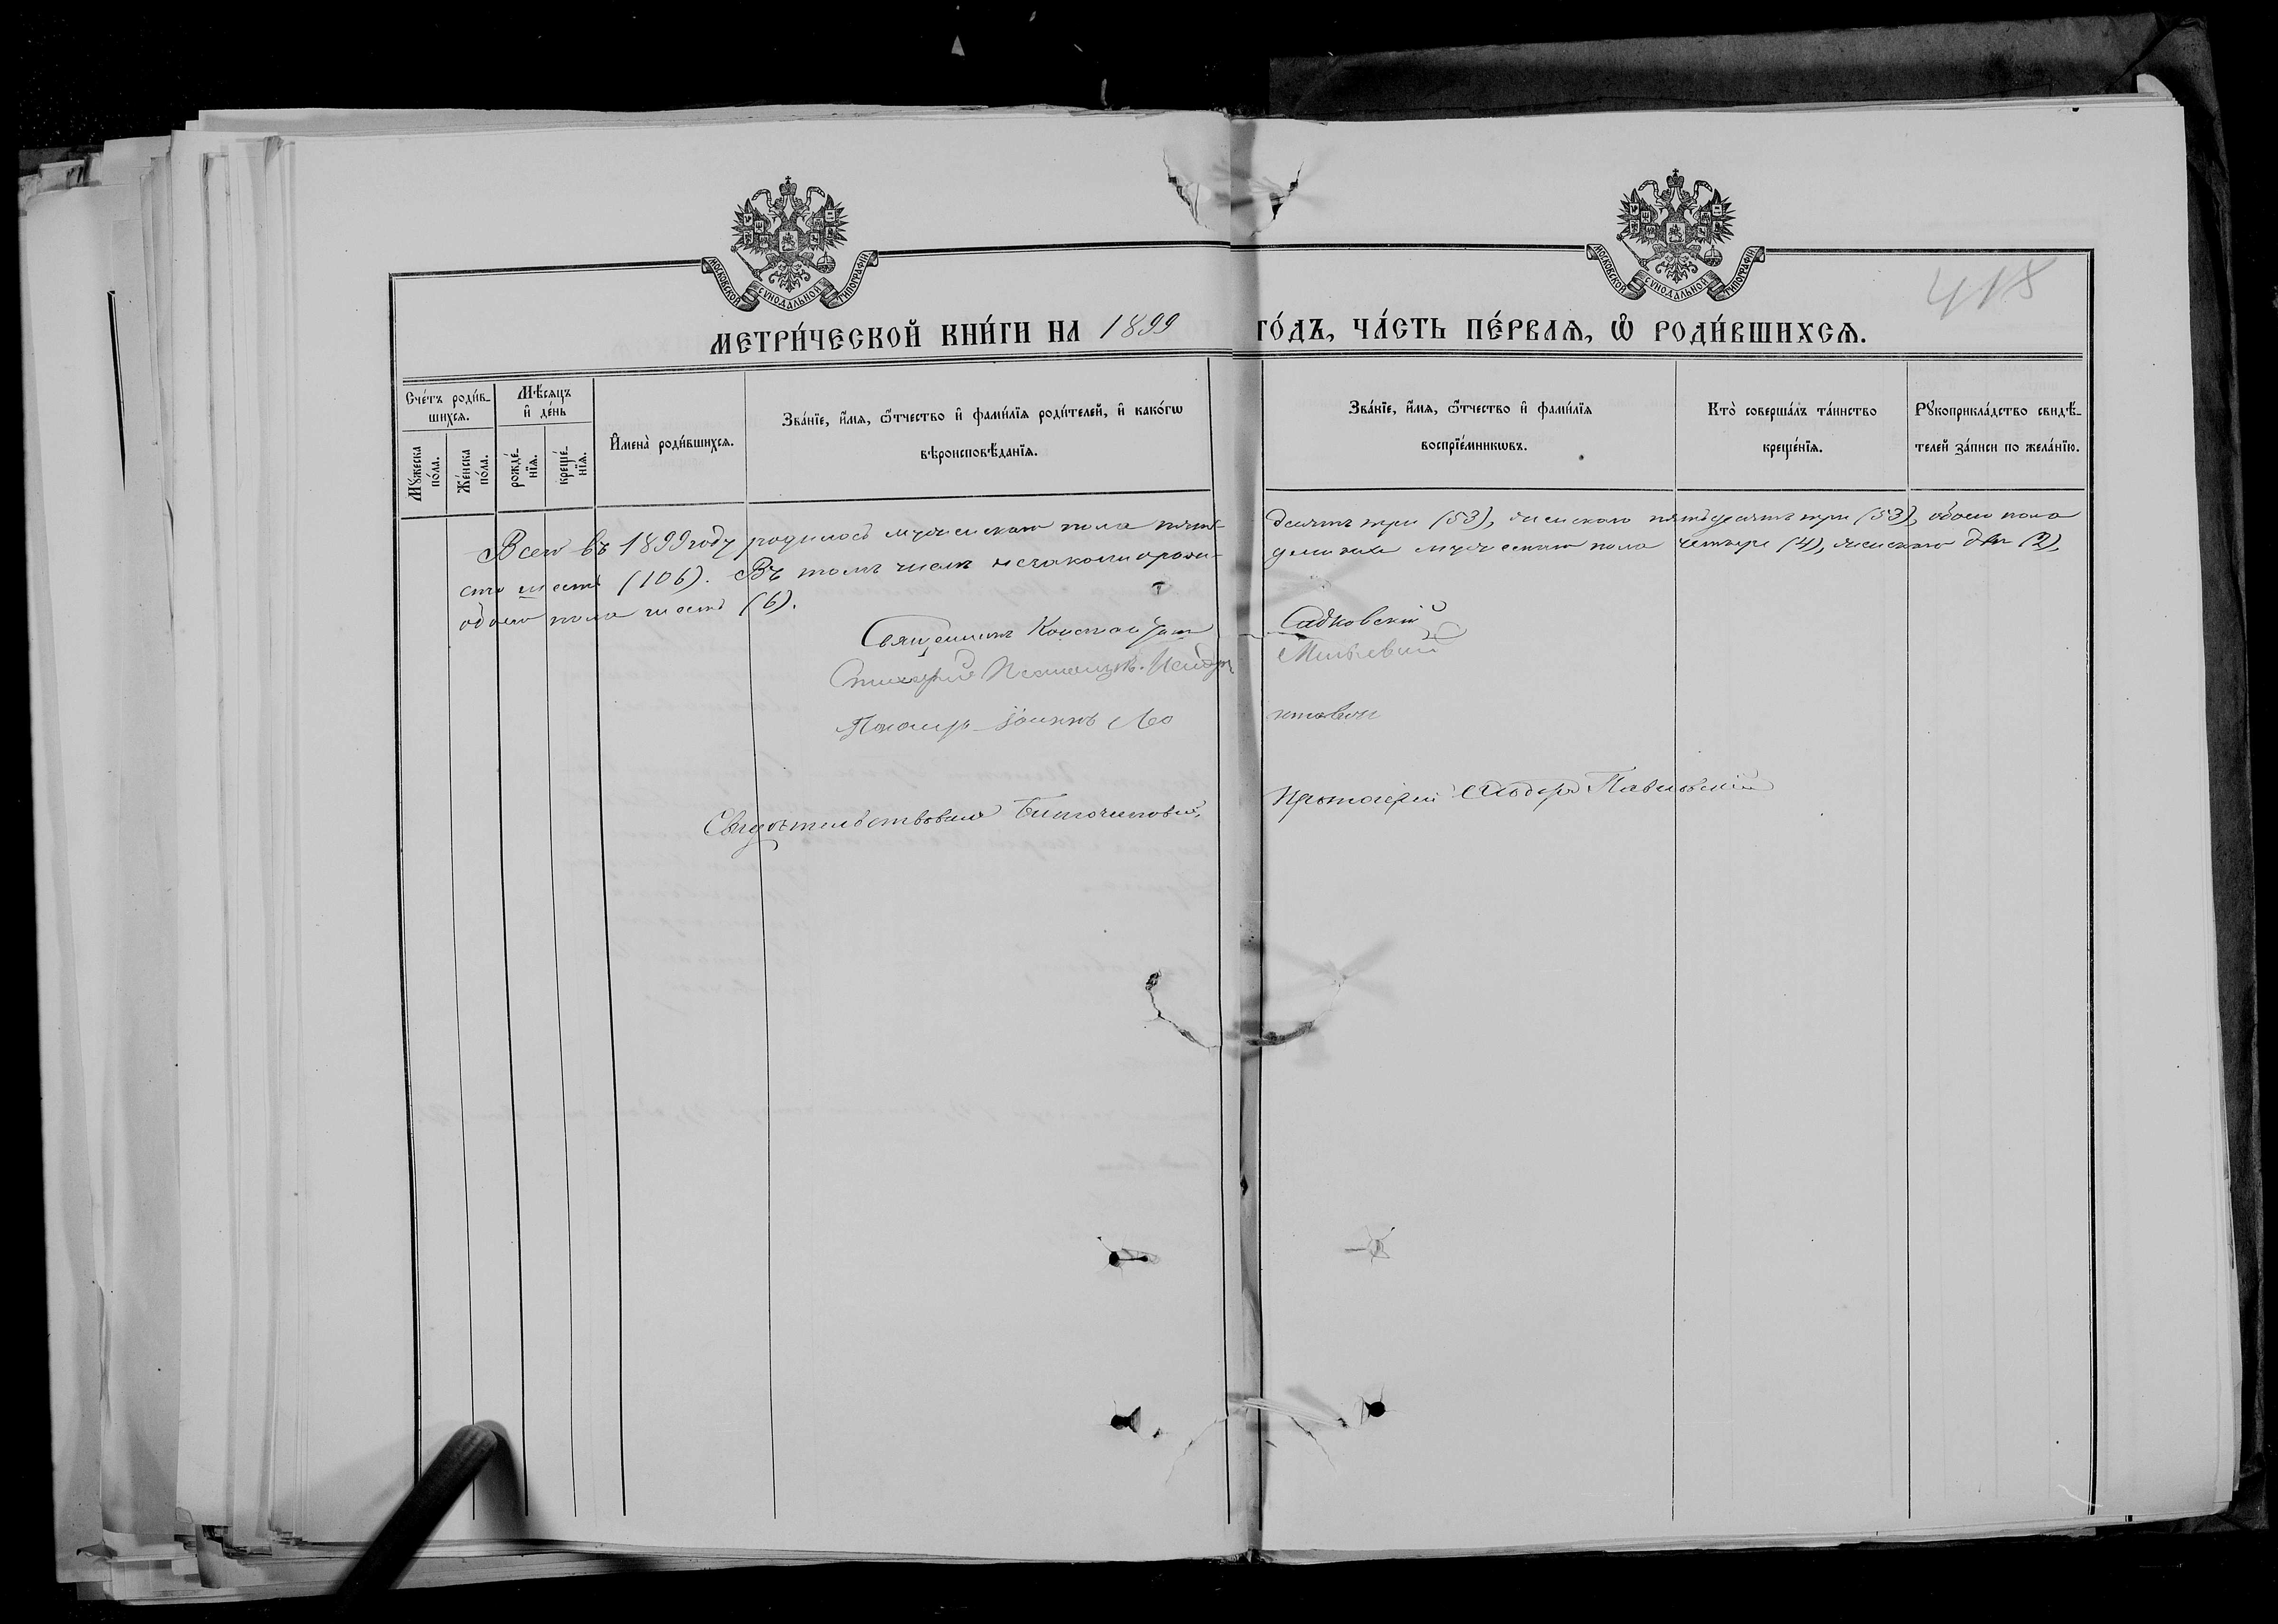 МОСКОВСКОЙ СѴНОДАЛЬНОЙ ТИПОГРАФІИ
МОСКОВСКОЙ СѴНОДАЛЬНОЙ ТИПОГРАФІИ
418
МЕТРИ́ЧЕСКОЙ КНИ́ГИ НА 1899 ГО́ДЪ, ЧА́СТЬ ПЕ́РВАѦ, Ѡ҆ РОДИ́ВШИХСѦ.
Сче́тъ роди́в-
шихсѧ.
Мꙋ́жеска по́ла.
Же́нска по́ла.
Мѣ́сѧцъ
и҆ де́нь
рожде́-
нїѧ.
креще́-
нїѧ.
И҆мена̀ роди́вшихсѧ.
Зва́нїе, и҆́мѧ, ѻ҆́тчество и҆ фами́лїѧ роди́телей, и҆ како́гѡ
вѣроисповѣ́данїѧ.
Зва́нїе, и҆́мѧ, ѻ҆́тчество и҆ фами́лїѧ
воспрїе́мникѡвъ.
Кто̀ соверша́лъ та́инство
креще́нїѧ.
Рꙋкоприкла́дство свидѣ́-
телей за́писи по жела́нїю.
Всего въ 1899 году родилось мужескаго пола пять-
десятъ три (53), женскаго пятьдесятъ три (53), обоего пола
сто шесть (106). Въ томъ числѣ незаконнорож-
денныхъ мужескаго пола четыре (4), женскаго двѣ (2),
обоего пола шесть (6).
Священникъ Константинъ Садковскій
Псаломщикъ
Свидѣтельствовалъ Благочинный, Протоіерей Ѳеодоръ Павловскій